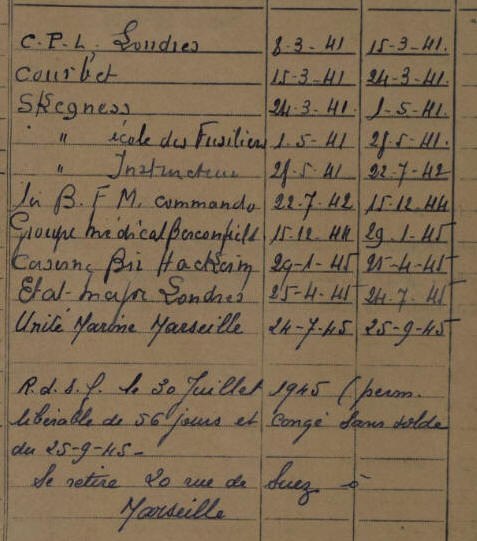 C.P.L, Londres 8-3-41 15-3-41.
Courbet 15-3-41 24-3-41.
Skegness 24-3-41. 1-5-41.
" " école des Fusiliers 1.5-41 28.5-41.
" Instructeur 28.5.41 22-7-42
1er B.F.M. commando 22-7-42 15-12-44
Groupe médical 15-12-44 29-1-45
Caserne Bir Hackeim 29-1-45 25-4-45
Etat-major Londres 25-4-45 24-7-45
Unité Marine Marseille 24-7-45 25-9-45
R.d.S.J. le 30 Juillet 1945 (perm.
libérable de 56 jours et congé sans solde
du 25-9-45-
Se retire 20 rue de Suez à
Marseille